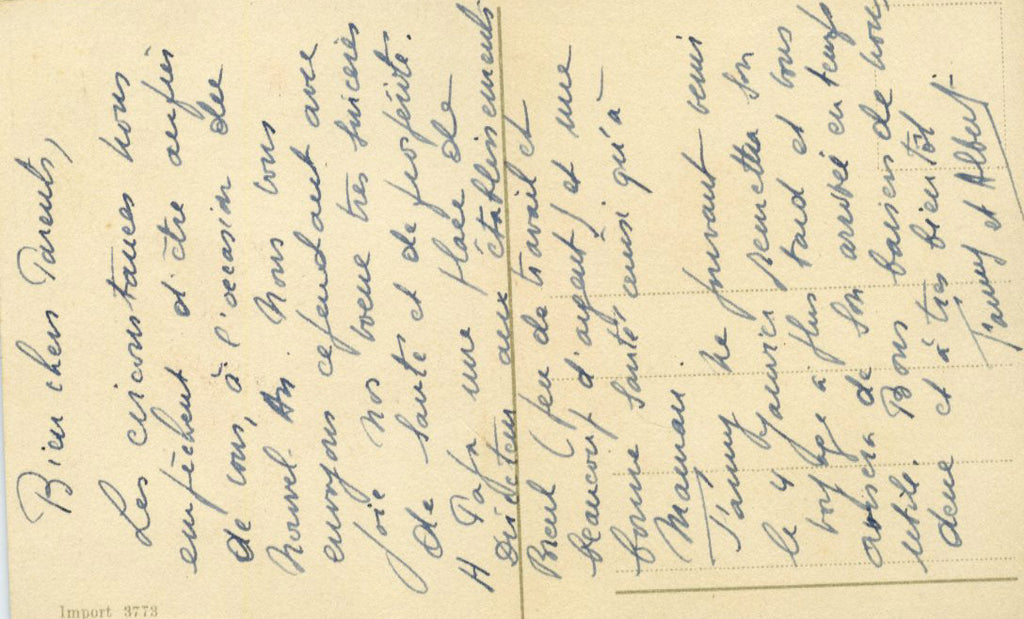 Bien chers Parents,
Les circonstances nous
empêchent d'être auprès
de vous, à l'occasion du
Nouvel-An Nous vous
envoyons cependant avec
joie Nos voeux très sincères
de santé et de prospérité.
A Papa une place de
Directeur aux établissements
(peu de travail et
beaucoup d'argent) et une
bonne santé ainsi qu'à
Maman
J'anny ne pouvant venir
le 4 Janvier remettra son
voyage à plus tard et vous
avisera de son arrivée en temps
utile. Bons baisers de nous
deux et à très bientôt
J'anny et Albert
Import 3773